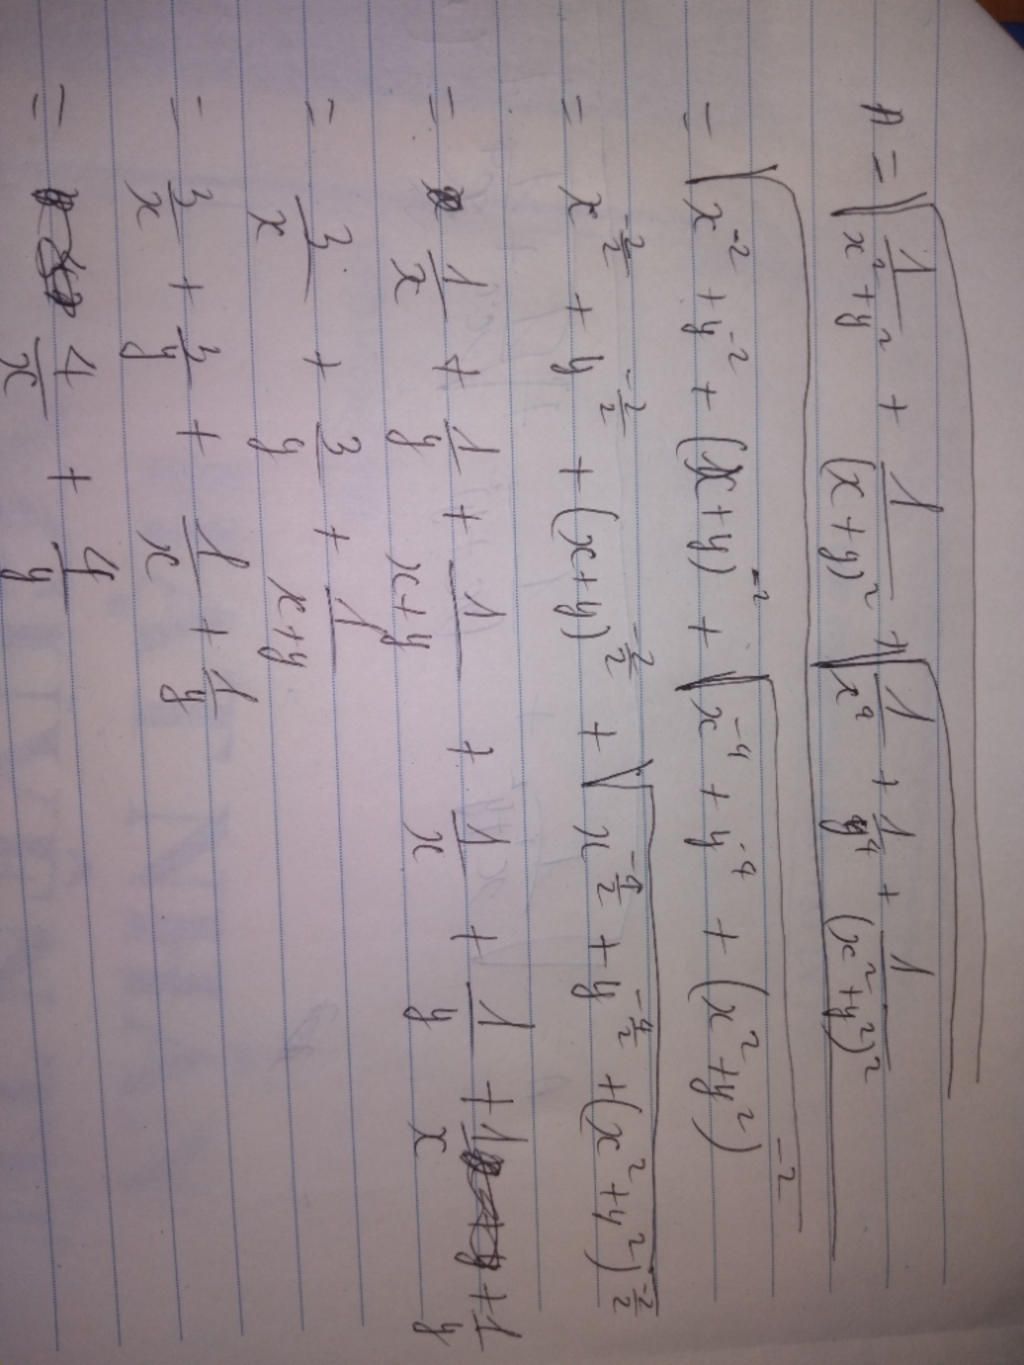 A = √(1/(x²+y²) + 1/(x+y)² + √(1/x⁴ + 1/y⁴ + 1/(x²+y²)²))
= √(x⁻² + y⁻² + (x+y)⁻² + √(x⁻⁴ + y⁻⁴ + (x²+y²)⁻²))
= x^(-2/2) + y^(-2/2) + (x+y)^(-2/2) + √(x^(-4/2) + y^(-4/2) + (x²+y²)^(-2/2))
= 1/x + 1/y + 1/(x+y) + 1/x + 1/y + 1/x + 1/y
= 3/x + 3/y + 1/(x+y)
= 3/x + 3/y + 1/x + 1/y
= 4/x + 4/y